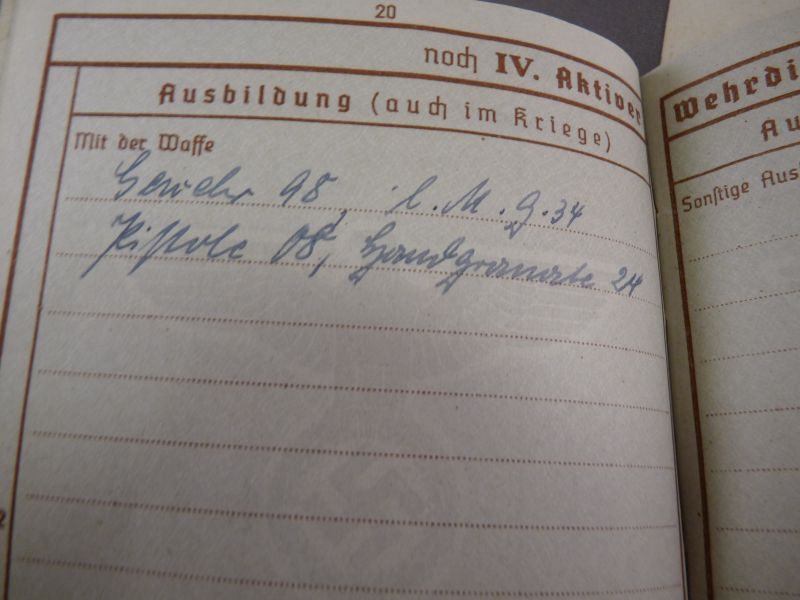 20
noch IV. Aktiver
Ausbildung (auch im Kriege)
Mit der Waffe
Gewehr 98, l. M. G. 34
Pistole 08, Handgranate 24
Wehrdi
Au
Sonstige Aus